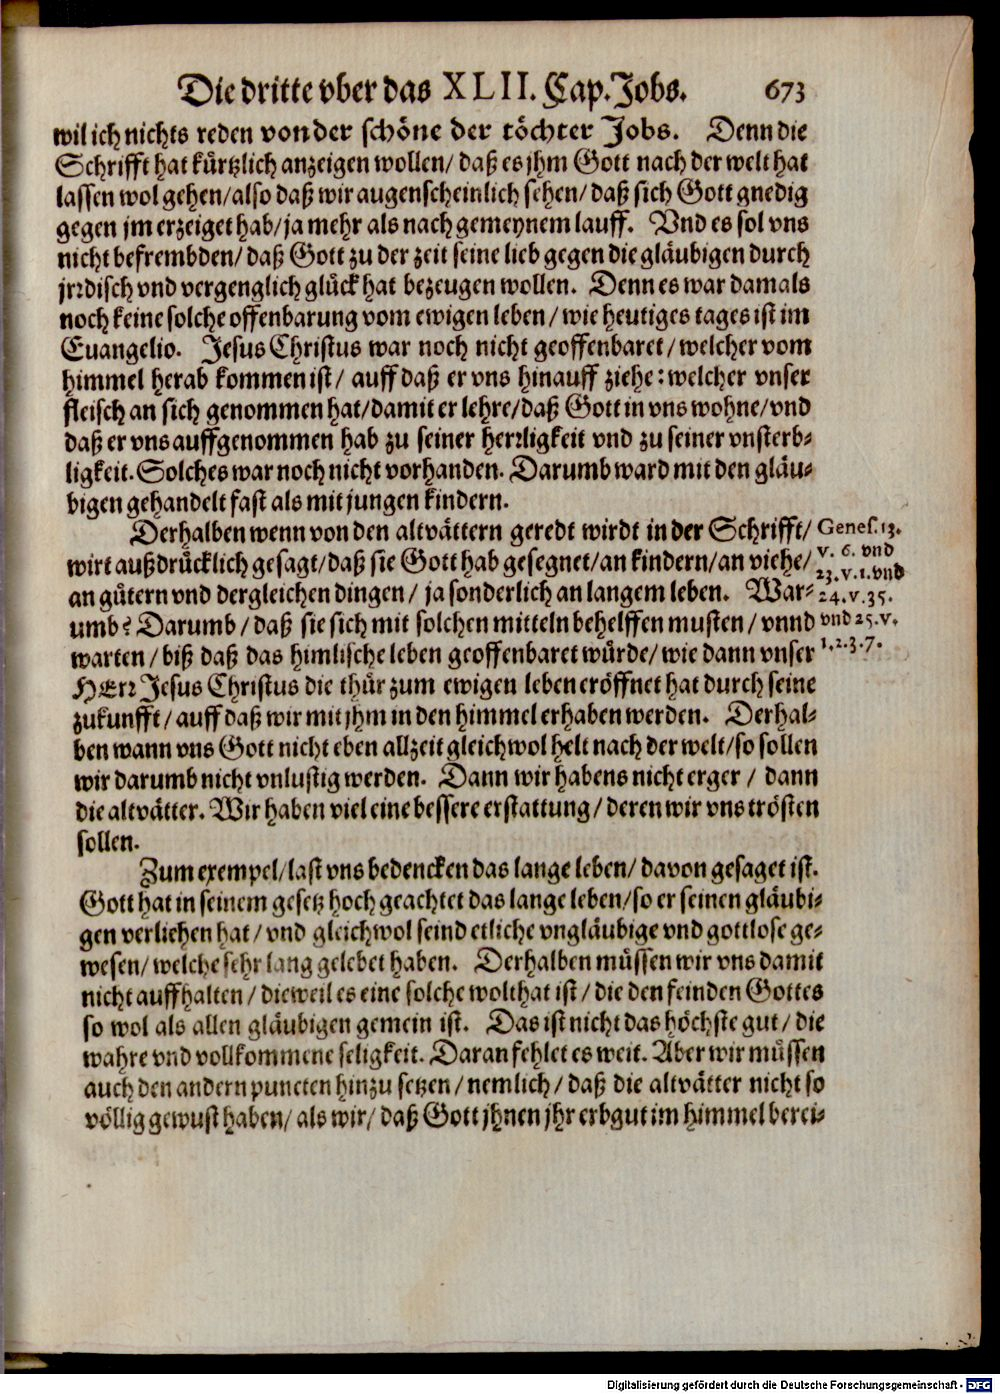 Die dritte vber das XLII. Cap. Jobs. 673
wil ich nichts reden von der schöne der töchter Jobs. Denn die
Schrifft hat kürtzlich anzeigen wollen/ daß es jhm Gott nach der welt hat
lassen wol gehen/ also daß wir augenscheinlich sehen/ daß sich Gott gnedig
gegen jm erzeiget hab/ ja mehr als nach gemeynem lauff. Vnd es sol vns
nicht befrembden/ daß Gott zu der zeit seine lieb gegen die gläubigen durch
jrrdisch vnd vergenglich glück hat bezeugen wollen. Denn es war damals
noch keine solche offenbarung vom ewigen leben/ wie heutiges tages ist im
Euangelio. Jesus Christus war noch nicht geoffenbaret/ welcher vom
himmel herab kommen ist/ auff daß er vns hinauff ziehe: welcher vnser
fleisch an sich genommen hat/ damit er lehre/ daß Gott in vns wohne/ vnd
daß er vns auffgenommen hab zu seiner herrligkeit vnd zu seiner vnsterb-
ligkeit. Solches war noch nicht vorhanden. Darumb ward mit den gläu-
bigen gehandelt fast als mit jungen kindern.
Derhalben wenn von den altvättern geredt wirdt in der Schrifft/
wirt außdrücklich gesagt/ daß sie Gott hab gesegnet/ an kindern/ an viehe/
an gütern vnd dergleichen dingen/ ja sonderlich an langem leben. War-
umb? Darumb/ daß sie sich mit solchen mitteln behelffen musten/ vnnd
warten/ biß daß das himlische leben geoffenbaret würde/ wie dann vnser
HErr Jesus Christus die thür zum ewigen leben eröffnet hat durch seine
zukunfft/ auff daß wir mit jhm in den himmel erhaben werden. Derhal-
ben wann vns Gott nicht eben allzeit gleichwol helt nach der welt/ so sollen
wir darumb nicht vnlustig werden. Dann wir habens nicht erger/ dann
die altvätter. Wir haben viel eine bessere erstattung/ deren wir vns trösten
sollen.
Genes. 13.
v. 6. vnd
23. v. 1. vnd
24. v. 35.
vnd 25. v.
1. 2. 3. 7.
Zum exempel/ last vns bedencken das lange leben/ davon gesaget ist.
Gott hat in seinem gesetz hoch geachtet das lange leben/ so er seinen gläubi-
gen verliehen hat/ vnd gleichwol seind etliche vngläubige vnd gottlose ge-
wesen/ welche sehr lang gelebet haben. Derhalben müssen wir vns damit
nicht auffhalten/ dieweil es eine solche wolthat ist/ die den feinden Gottes
so wol als allen gläubigen gemein ist. Das ist nicht das höchste gut/ die
wahre vnd vollkommene seligkeit. Daran fehlet es weit. Aber wir müssen
auch den andern puncten hinzu setzen/ nemlich/ daß die altvätter nicht so
völlig gewust haben/ als wir/ daß Gott jhnen jhr erbgut im himmel berei-
Digitalisierung gefördert durch die Deutsche Forschungsgemeinschaft - DFG